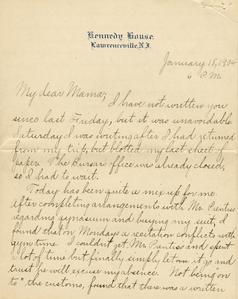 Kennedy House.
Lawrenceville, N.J.
January 18, 1904
6 P.M.
My dear Mama;
I have not written you
since last Friday, but it was unavoidable.
Saturday I was writing after I had returned
from my trip, but blotted my last sheet of
paper. The Bursar office was already closed,
so I had to wait.
Today has been quite a mix up for me.
After completing arrangements with Mr.
regarding gymnasium and buying my suit, I
found that on Monday a recitation conflicts with
gym time. I couldn't get Mr. and spent
a lot of time but finally simply let it go and
trust he will excuse my absence. Not being on
to "the customs, found that there was a written